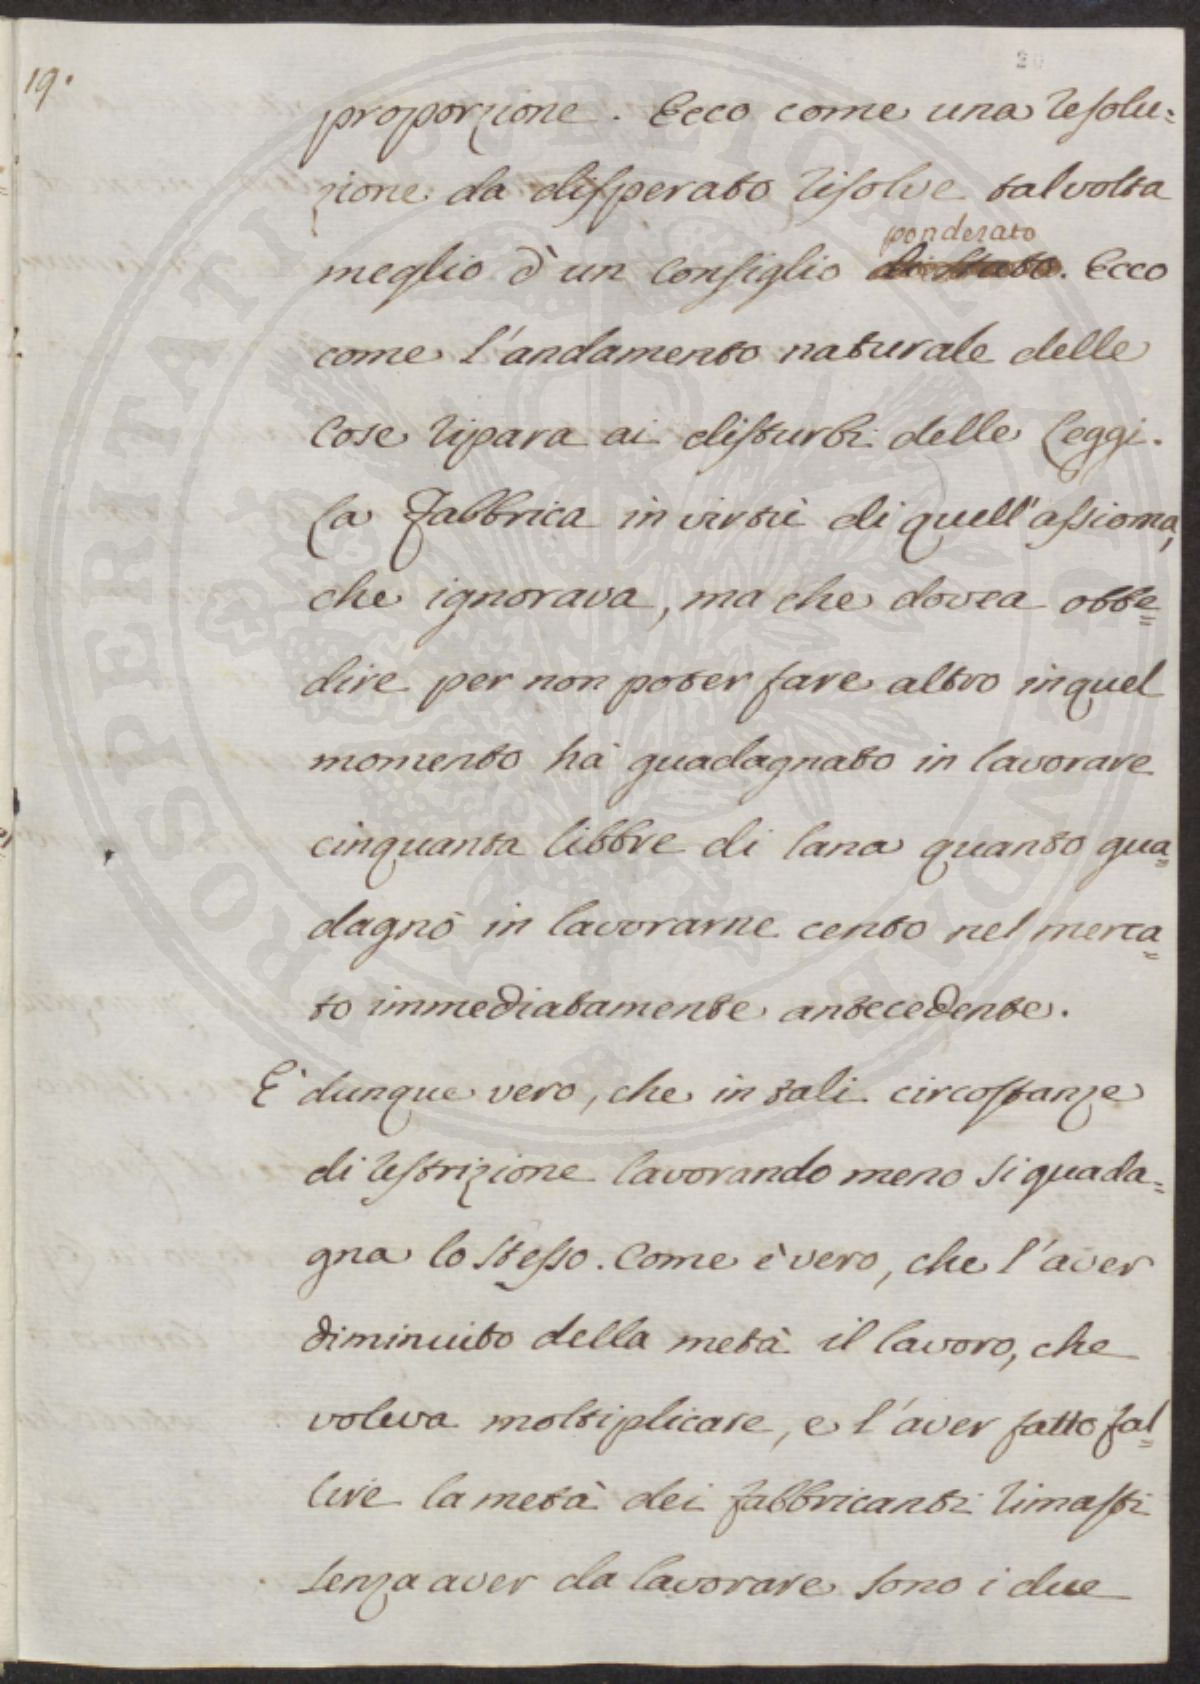 19.
20
proporzione. Ecco come una resolu=
zione da disperato risolve talvolta
ponderato
meglio d'un Consiglio di Stato. Ecco
come l'andamento naturale delle
Cose ripara ai disturbi delle Leggi.
La Fabbrica in virtù di quell'assioma,
che ignorava, ma che dovea obbe=
dire per non poter fare altro in quel
momento hà guadagnato in lavorare
cinquanta libbre di lana quanto gua=
dagnò in lavorarne cento nel merca=
to immediatamente antecedente.
È dunque vero, che in tali circostanze
di restrizione lavorando meno si guada=
gna lo stesso. Come è vero, che l'aver
diminuito della metà il lavoro, che
voleva moltiplicare, e l'aver fatto fal=
lire la metà dei fabbricanti rimasti
senza aver da lavorare sono i due
PROSPERITATI PUBLICAE AUGENDAE